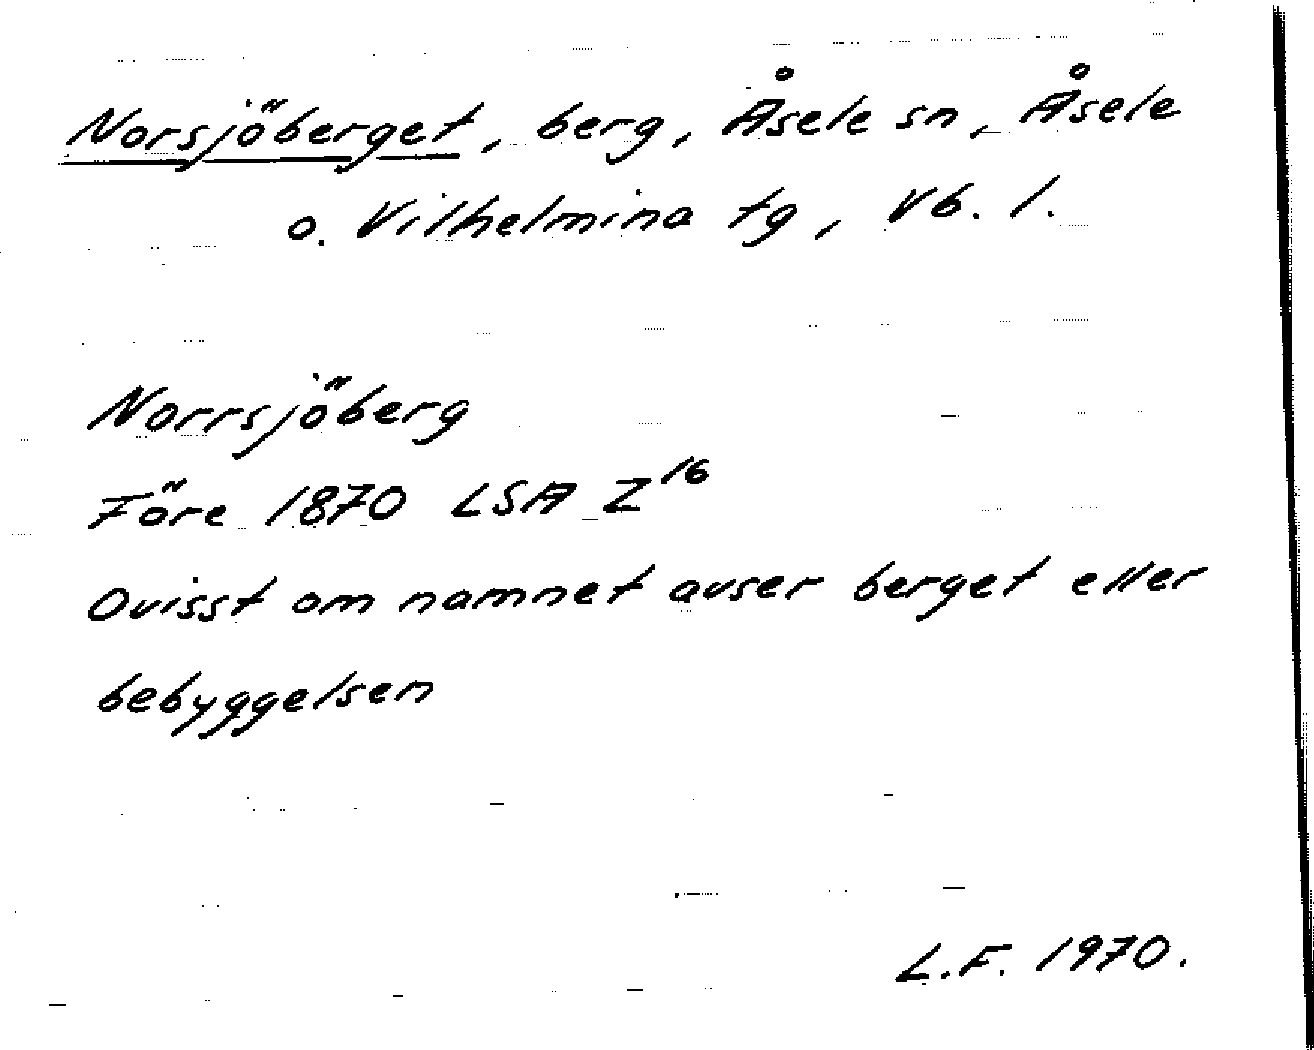 Norsjöberget, berg, Åsele sn, Åsele
o. Vilhelmina tg, Vb. l.
Norrsjöberg
Före 1870 LSA Z16
Ovisst om namnet avser berget eller
bebyggelsen
L.F. 1970.